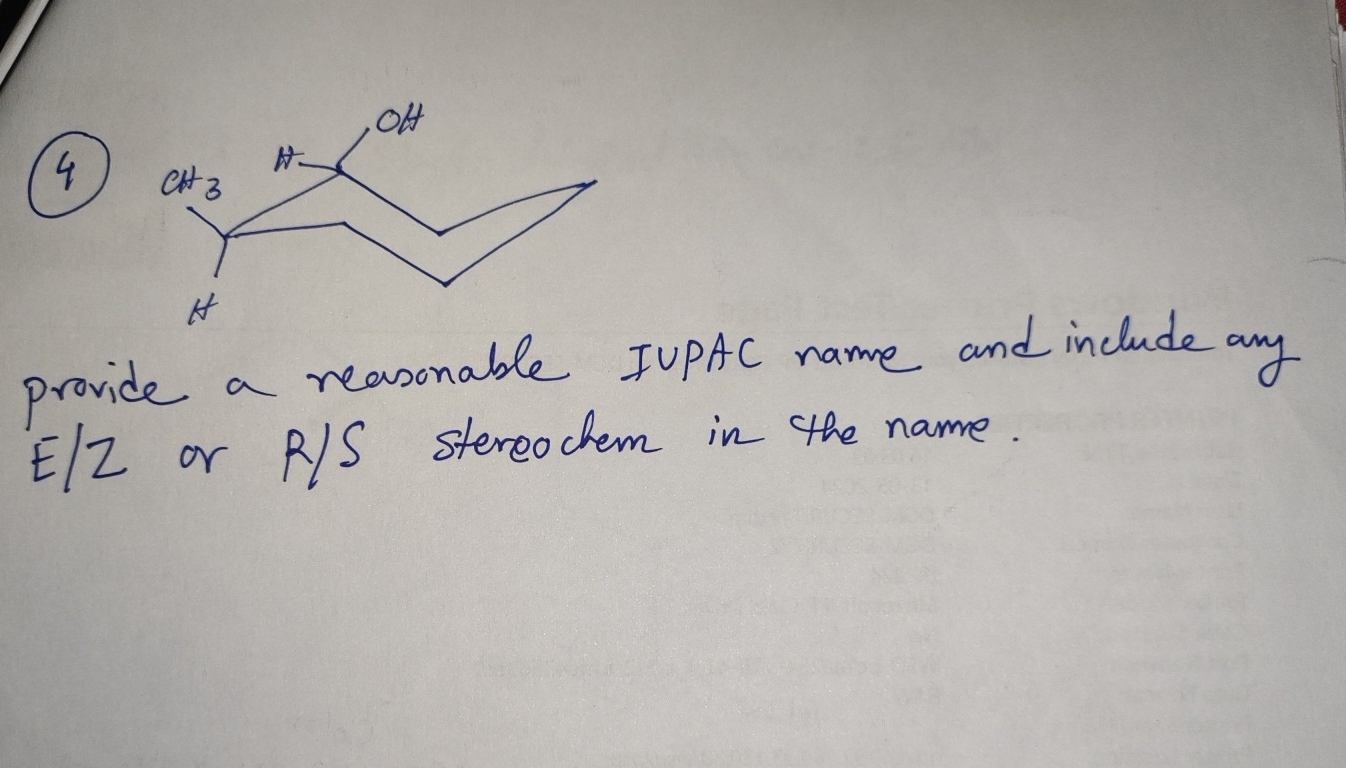 4
OH
H
CH3
H
provide a reasonable IUPAC name and include any
E/Z or R/S stereochem in the name.